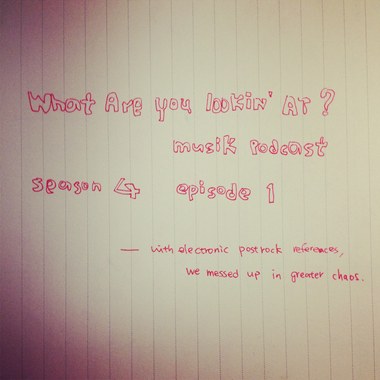 What Are you lookin' At?
musik Podcast
season 4 episode 1
— with electronic postrock references,
we messed up in greater chaos.